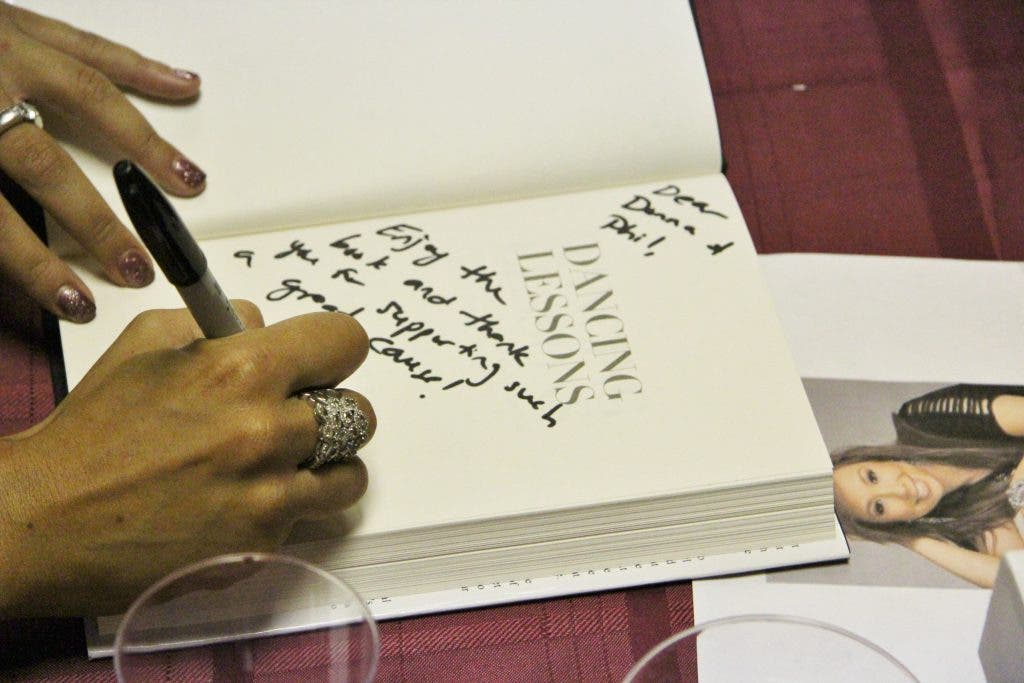 Dear
Donna &
Phil!
DANCING
LESSONS
Enjoy the
book and thank
you for supporting such
a great cause!